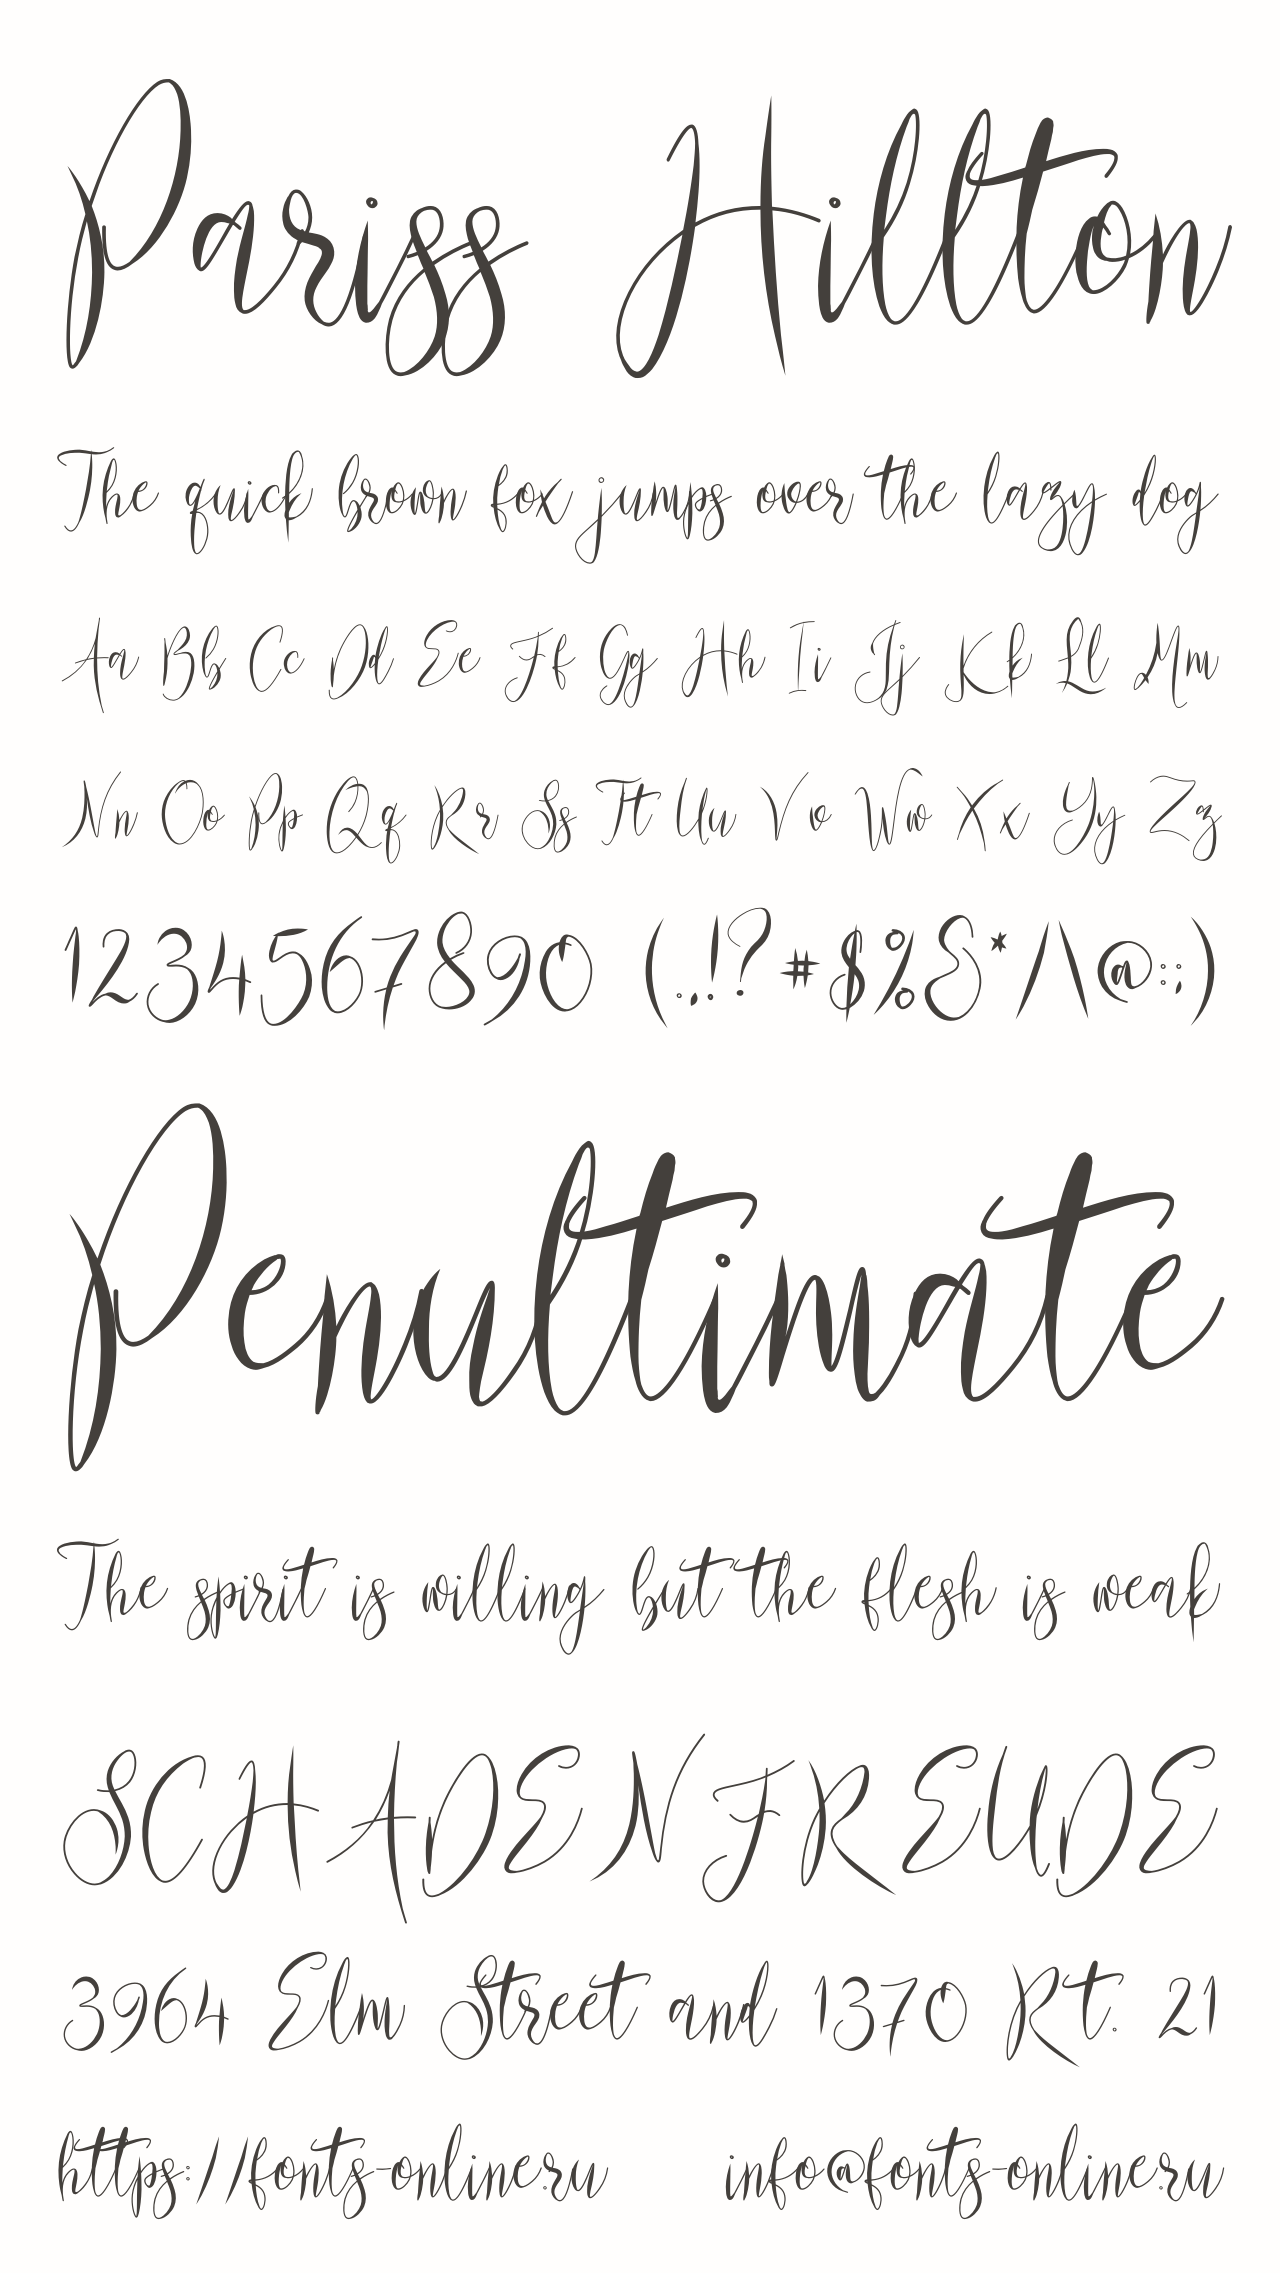 Pariss Hillton
The quick brown fox jumps over the lazy dog
Aa Bb Cc Dd Ee Ff Gg Hh Ii Jj Kk Ll Mm
Nn Oo Pp Qq Rr Ss Tt Uu Vv Ww Xx Yy Zz
1234567890 (.,!?#$%&*/\@:;)
Penultimate
The spirit is willing but the flesh is weak
SCHADENFREUDE
3964 Elm Street and 1370 Rt. 21
https://fonts-online.ru info@fonts-online.ru